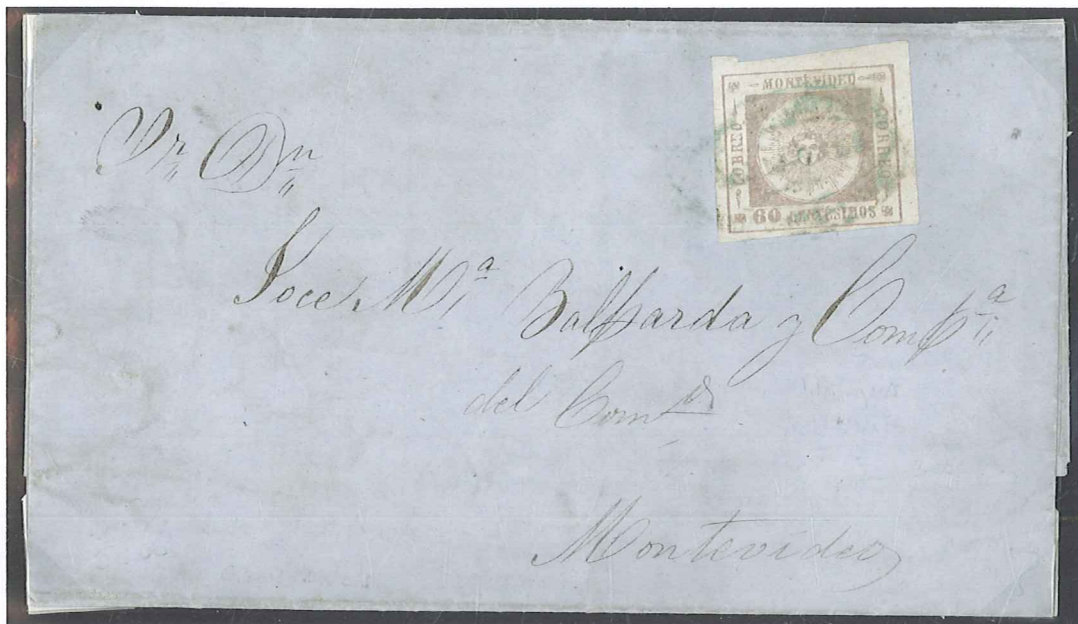 MONTEVIDEO
CORREO
CORREO
60 CENTESIMOS
Sr. Dn.
Jose Ma. Balparda y Compa.
del Como.
Montevideo